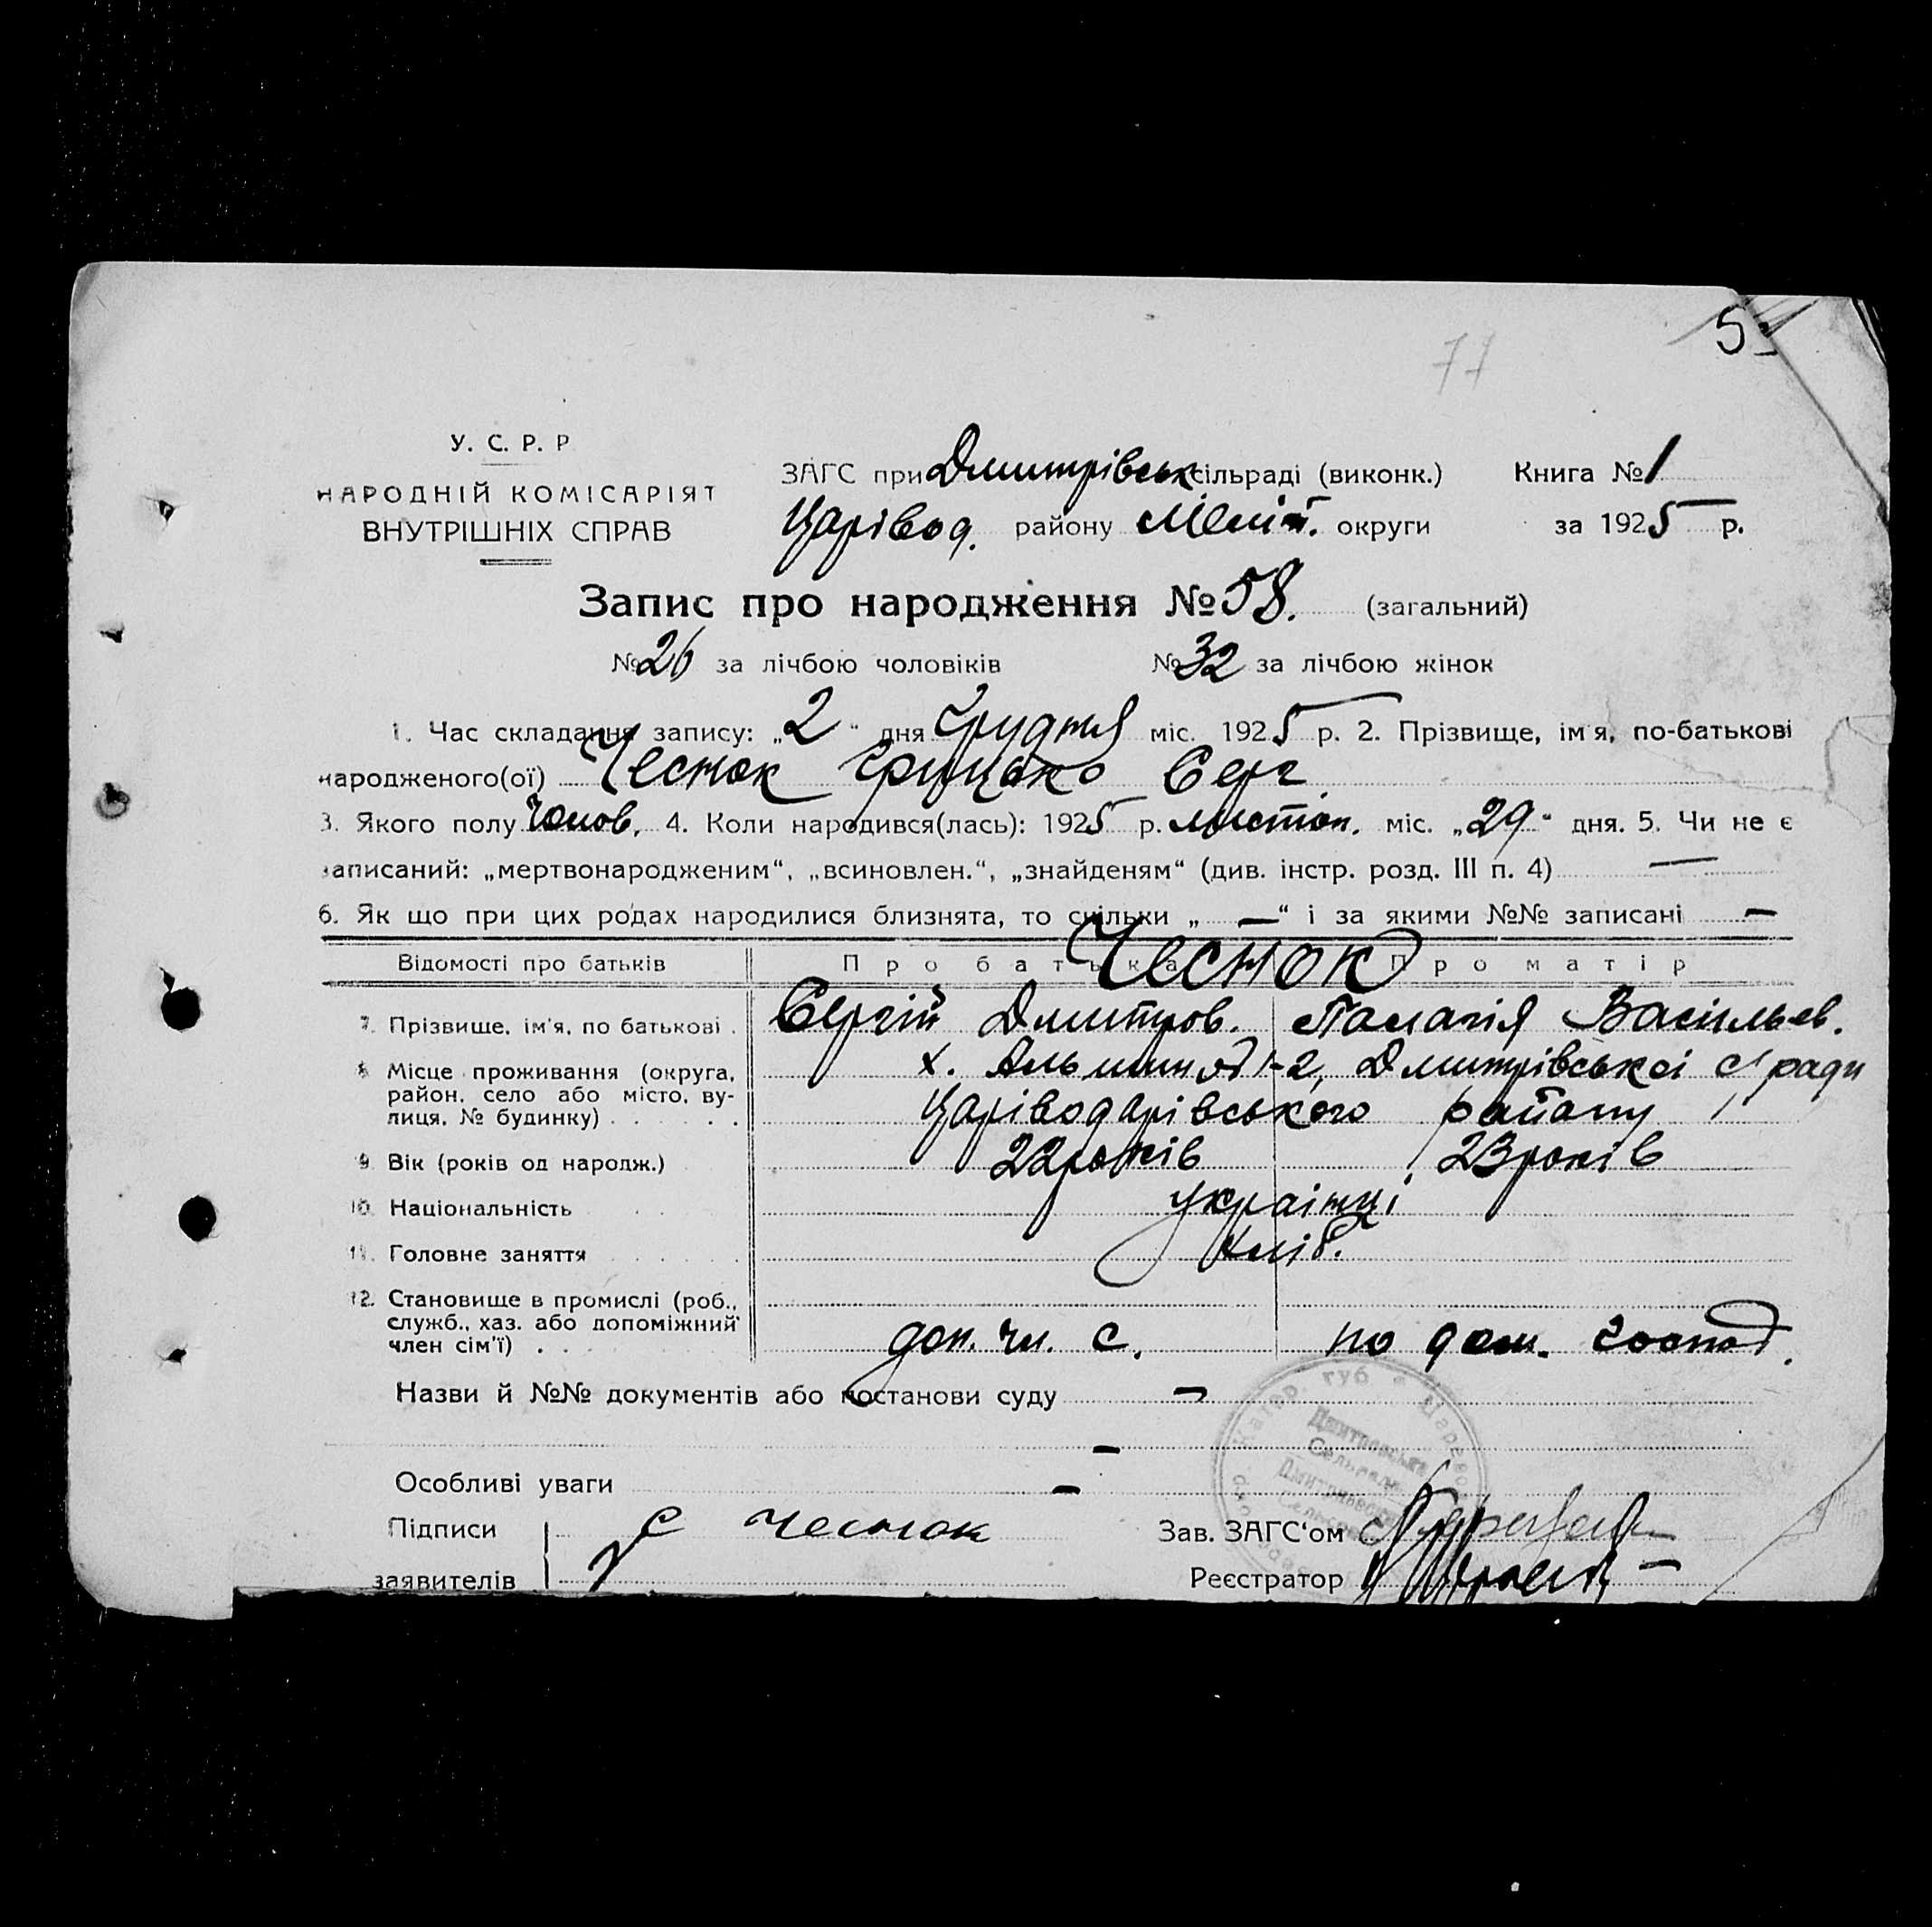 5
77
У. С. Р. Р
НАРОДНІЙ КОМІСАРІЯТ
ВНУТРІШНІХ СПРАВ
ЗАГС при Дмитрівськ сільраді (виконк.) Книга № 1
Царівод. району Меліт. округи за 1925 р.
Запис про народження № 58. (загальний)
№ 26 за лічбою чоловіків № 32 за лічбою жінок
1. Час складання запису: „2“ дня Грудня міс. 1925 р. 2. Прізвище, ім'я, по-батькові
народженого(ої) Чеснок Грицько Серг
3. Якого полу Чолов, 4. Коли народився(лась): 1925 р. листоп. міс. „29“ дня. 5. Чи не є
записаний: „мертвонародженим“, „всиновлен.“, „знайденям“ (див. інстр. розд. III п. 4) —
6. Як що при цих родах народилися близнята, то скільки „—“ і за якими №№ записані —
Відомості про батьків Про батька Про матір
Чеснок
7. Прізвище, ім'я, по батькові . Сергій Дмитров. Палагія Васильев.
8. Місце проживання (округа, район, село або місто, вулиця, № будинку) х. 2, Дмитрівської с/ради
Царіводарівського району
9. Вік (років од народж.) 22 років 23 років
10. Національність українці
11. Головне заняття хліб.
12. Становище в промислі (роб., служб., хаз. або допоміжний член сім'ї) . доп. чл. с. по дом. господ.
Назви й №№ документів або постанови суду —
—
Особливі уваги —
Підписи С Чеснок Зав. ЗАГС'ом
заявителів Реєстратор